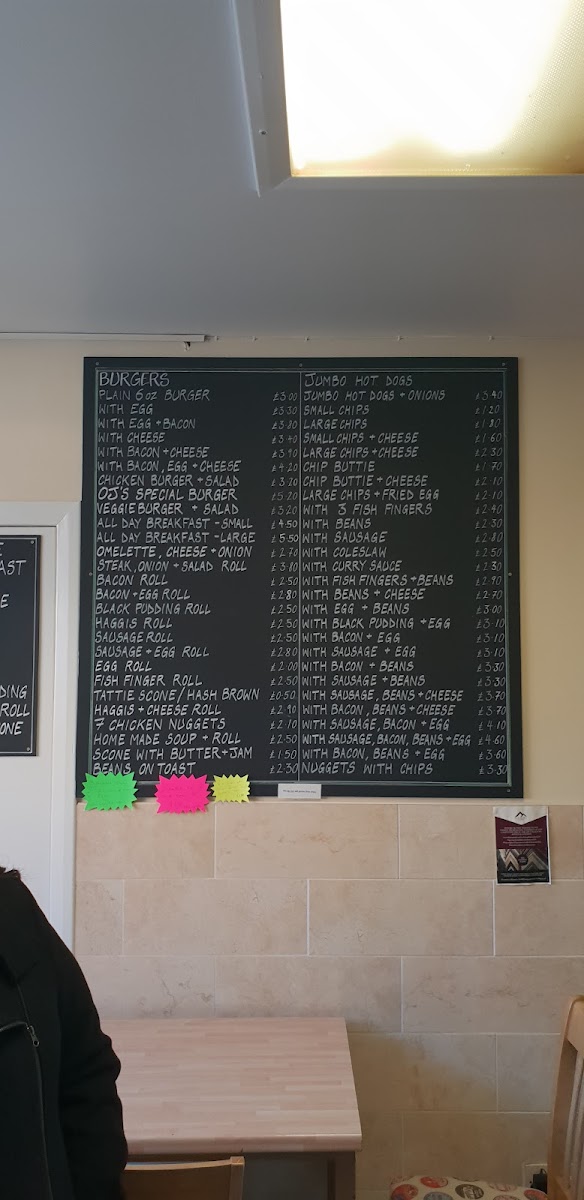 BURGERS
PLAIN 6oz BURGER £3.00
WITH EGG £3.30
WITH EGG + BACON £3.80
WITH CHEESE £3.40
WITH BACON + CHEESE £3.90
WITH BACON, EGG + CHEESE £4.20
CHICKEN BURGER + SALAD £3.20
OJ'S SPECIAL BURGER £5.20
VEGGIE BURGER + SALAD £3.20
ALL DAY BREAKFAST - SMALL £4.50
ALL DAY BREAKFAST - LARGE £5.50
OMELETTE, CHEESE + ONION £2.70
STEAK, ONION + SALAD ROLL £3.80
BACON ROLL £2.50
BACON + EGG ROLL £2.80
BLACK PUDDING ROLL £2.50
HAGGIS ROLL £2.50
SAUSAGE ROLL £2.50
SAUSAGE + EGG ROLL £2.80
EGG ROLL £2.00
FISH FINGER ROLL £2.50
TATTIE SCONE / HASH BROWN £0.50
HAGGIS + CHEESE ROLL £2.90
7 CHICKEN NUGGETS £2.10
HOME MADE SOUP + ROLL £2.50
SCONE WITH BUTTER + JAM £1.50
BEANS ON TOAST £2.30
JUMBO HOT DOGS
JUMBO HOT DOGS + ONIONS £3.40
SMALL CHIPS £1.20
LARGE CHIPS £1.80
SMALL CHIPS + CHEESE £1.60
LARGE CHIPS + CHEESE £2.30
CHIP BUTTIE £1.70
CHIP BUTTIE + CHEESE £2.10
LARGE CHIPS + FRIED EGG £2.10
WITH 3 FISH FINGERS £2.40
WITH BEANS £2.30
WITH SAUSAGE £2.80
WITH COLESLAW £2.50
WITH CURRY SAUCE £2.30
WITH FISH FINGERS + BEANS £2.90
WITH BEANS + CHEESE £2.70
WITH EGG + BEANS £3.00
WITH BLACK PUDDING + EGG £3.10
WITH BACON + EGG £3.10
WITH SAUSAGE + EGG £3.10
WITH BACON + BEANS £3.30
WITH SAUSAGE + BEANS £3.30
WITH SAUSAGE, BEANS + CHEESE £3.70
WITH BACON, BEANS + CHEESE £3.70
WITH SAUSAGE, BACON + EGG £4.10
WITH SAUSAGE, BACON, BEANS + EGG £4.60
WITH BACON, BEANS + EGG £3.60
NUGGETS WITH CHIPS £3.30
AST
E
DING
ROLL
ONE